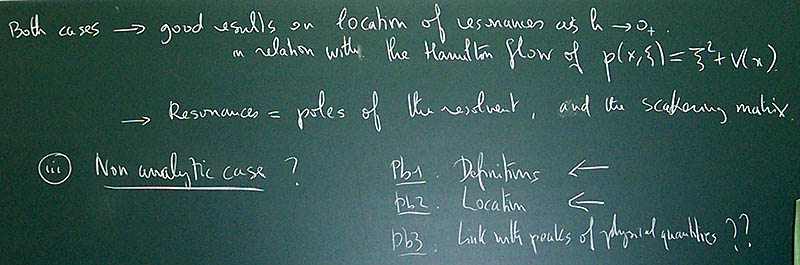 Both cases → good results on location of resonances as h → 0+.
in relation with the Hamilton flow of p(x,ξ) = ξ² + V(x).
→ Resonances = poles of the resolvent, and the scattering matrix.
(iii) Non analytic case ?
Pb1. Definitions ←
Pb2. Location ←
Pb3. Link with peaks of physical quantities ??